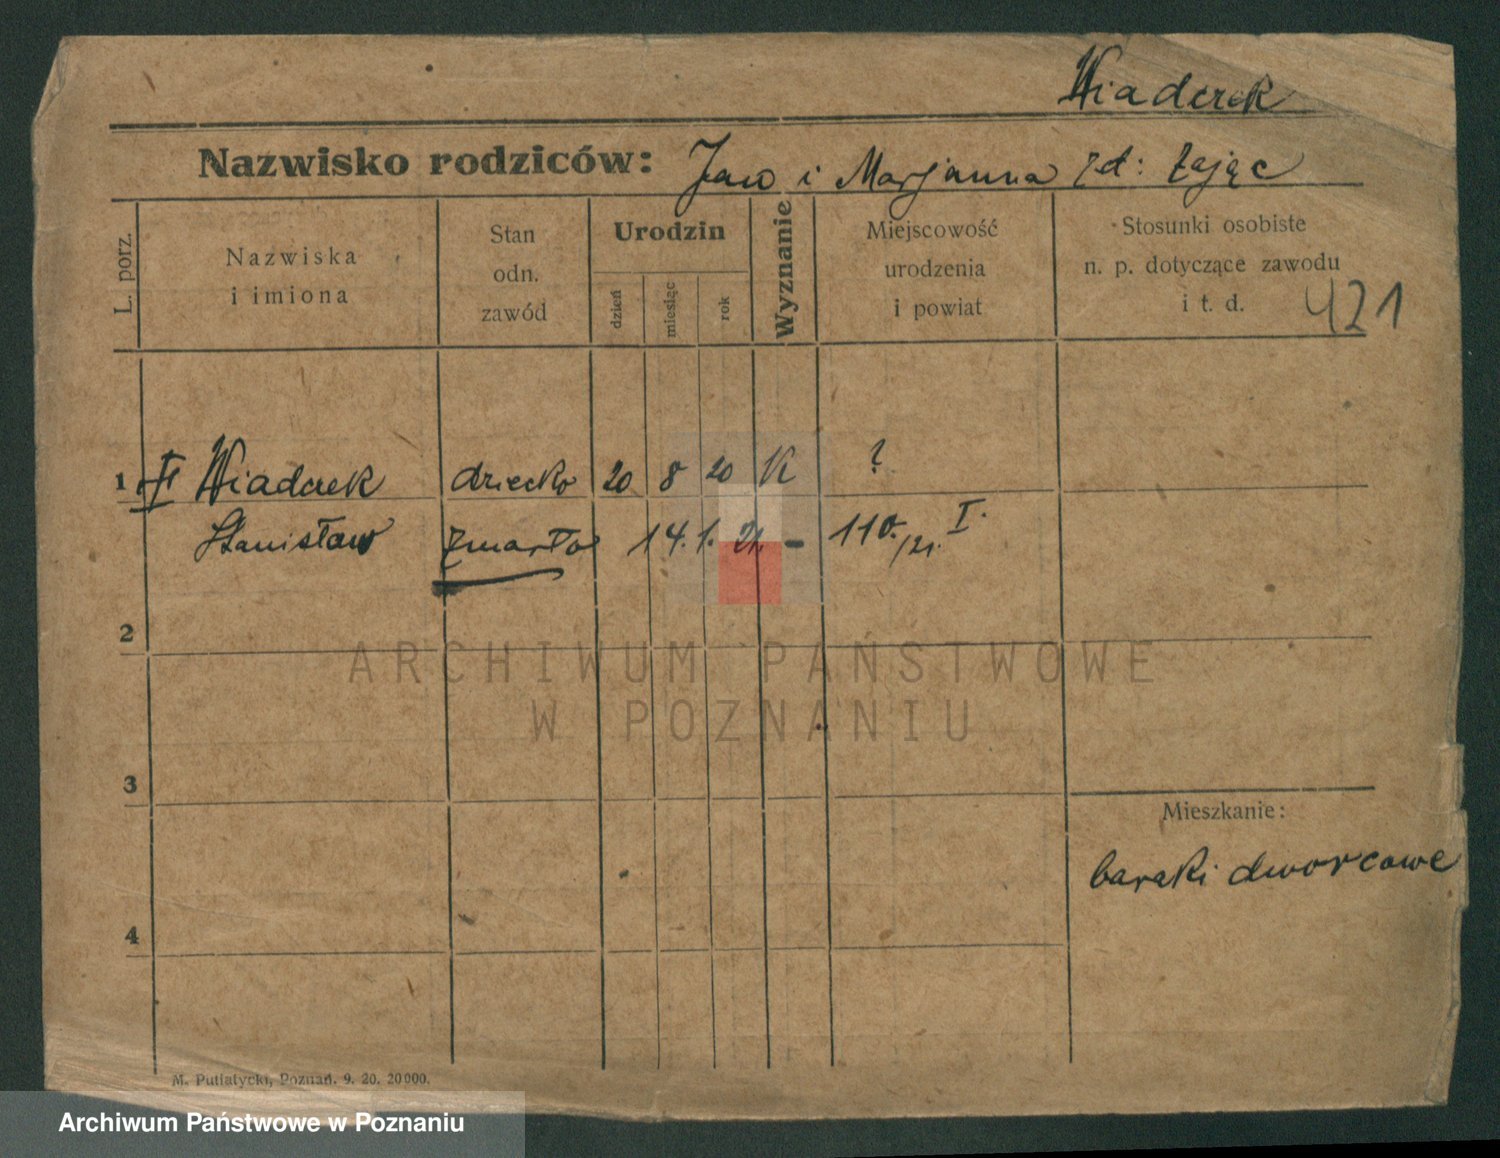 Wiaderek
Nazwisko rodziców: Jan i Marjanna zd: Zając
L. porz.
Nazwiska
i imiona
Stan
odn.
zawód
Urodzin
dzień
miesiąc
rok
Wyznanie
Miejscowość
urodzenia
i powiat
Stosunki osobiste
n. p. dotyczące zawodu
i t. d.
421
1 Wiaderek dziecko 20 8 20 K ?
Stanisław zmarło 14. 1. 21. – 110./21. I.
2
3
4
Mieszkanie:
baraki dworcowe
M. Putiatycki, Poznań. 9. 20. 20000.
ARCHIWUM PAŃSTWOWE
W POZNANIU
Archiwum Państwowe w Poznaniu